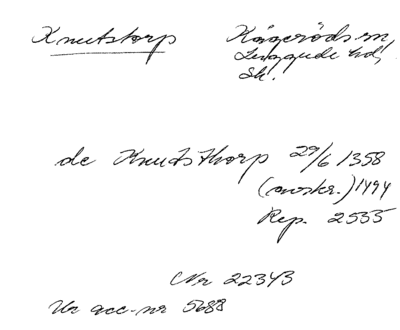 Knutstorp Kågeröds sn,
Luggude hd,
Sk.
de Knutsthorp 29/6 1358
(avskr.) 1494
Rep. 2535
Nr 22343
Ur acc-nr 5688